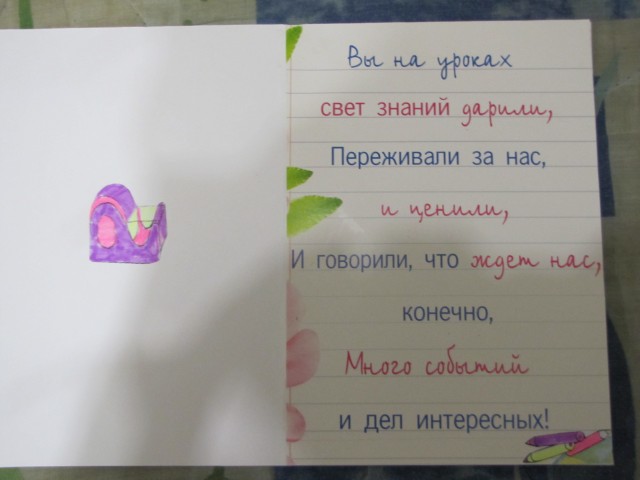 Вы на уроках
свет знаний дарили,
Переживали за нас,
и ценили,
И говорили, что ждет нас,
конечно,
Много событий
и дел интересных!